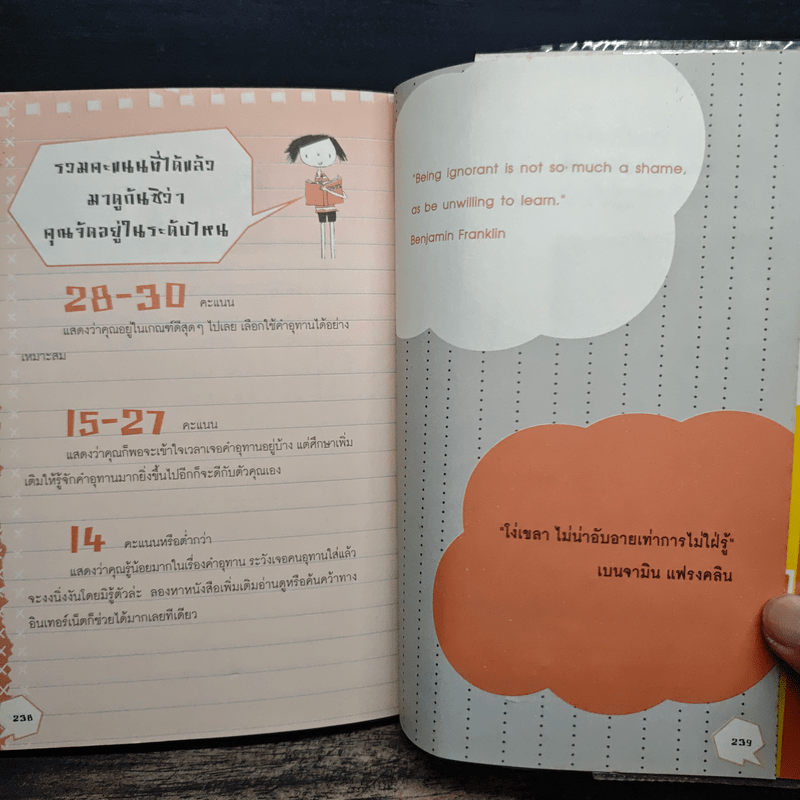 รวมคะแนนที่ได้แล้ว
มาดูกันซิว่า
คุณจัดอยู่ในระดับไหน
28-30 คะแนน
แสดงว่าคุณอยู่ในเกณฑ์ดีสุดๆ ไปเลย เลือกใช้คำอุทานได้อย่าง
เหมาะสม
15-27 คะแนน
แสดงว่าคุณก็พอจะเข้าใจเวลาเจอคำอุทานอยู่บ้าง แต่ศึกษาเพิ่ม
เติมให้รู้จักคำอุทานมากยิ่งขึ้นไปอีกก็จะดีกับตัวคุณเอง
14 คะแนนหรือต่ำกว่า
แสดงว่าคุณรู้น้อยมากในเรื่องคำอุทาน ระวังเจอคนอุทานใส่แล้ว
จะงงนิ่งงันโดยมิรู้ตัวล่ะ ลองหาหนังสือเพิ่มเติมอ่านดูหรือค้นคว้าทาง
อินเทอร์เน็ตก็ช่วยได้มากเลยทีเดียว
238
"Being ignorant is not so much a shame,
as be unwilling to learn."
Benjamin Franklin
"โง่เขลา ไม่น่าอับอายเท่าการไม่ใฝ่รู้"
เบนจามิน แฟรงคลิน
239